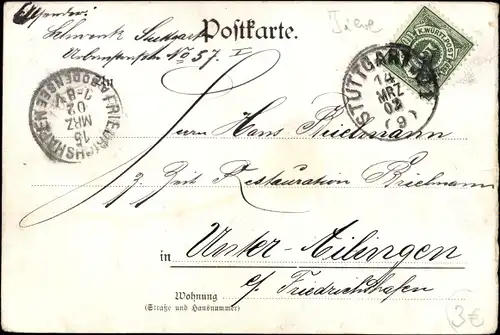 Absender:
Schwenk Stuttgart
No 57. I
Postkarte.
Tiere
K. WÜRTT. POST
5
STUTTGART
14
MRZ
02
(9)
FRIEDRICHSHAFEN
A BODENSEE
15
MRZ
02
7-8 V
An
Herrn Hans Brielmann
z. Zeit Restauration Brielmann
in Unter-Ailingen
b/ Friedrichshafen
Wohnung
(Straße und Hausnummer)
3€